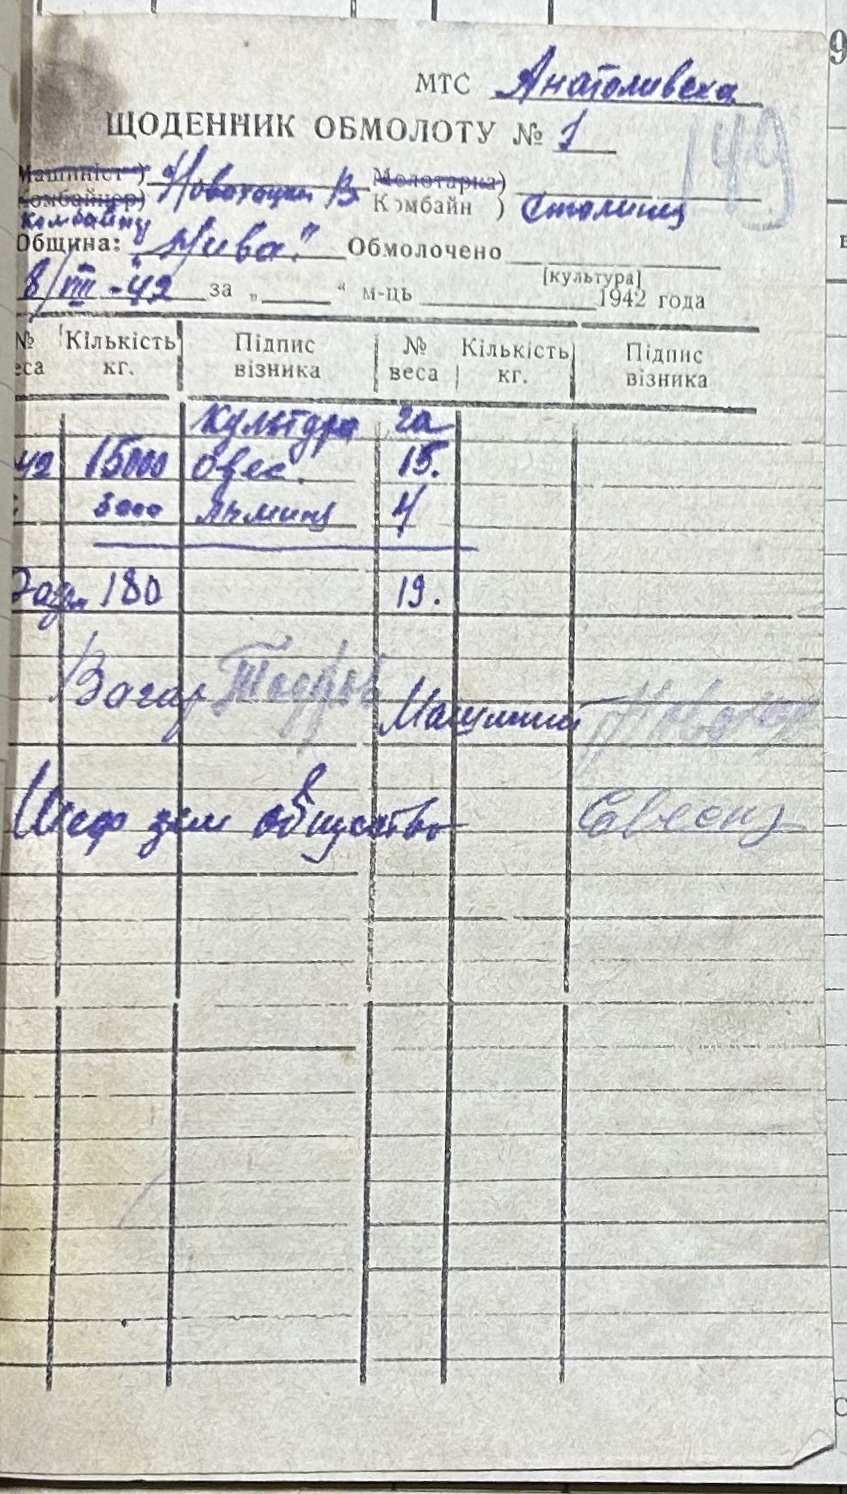 МТС Анатоливска
ЩОДЕННИК ОБМОЛОТУ № 1
149
Машиніст) Новохоцкий В Молотарка)
Комбайнер) Комбайн ) Сталинец
комбайну
Община: „Нива." Обмолочено
[культура]
8/VIII-42 за „ “ м-ць 1942 года
№ Кількість Підпис № Кількість Підпис
веса кг. візника веса кг. візника
культура га
42 15000 овес. 15.
5000 ячминь 4
180 19.
Вагар Машинист
Шеф зем общество